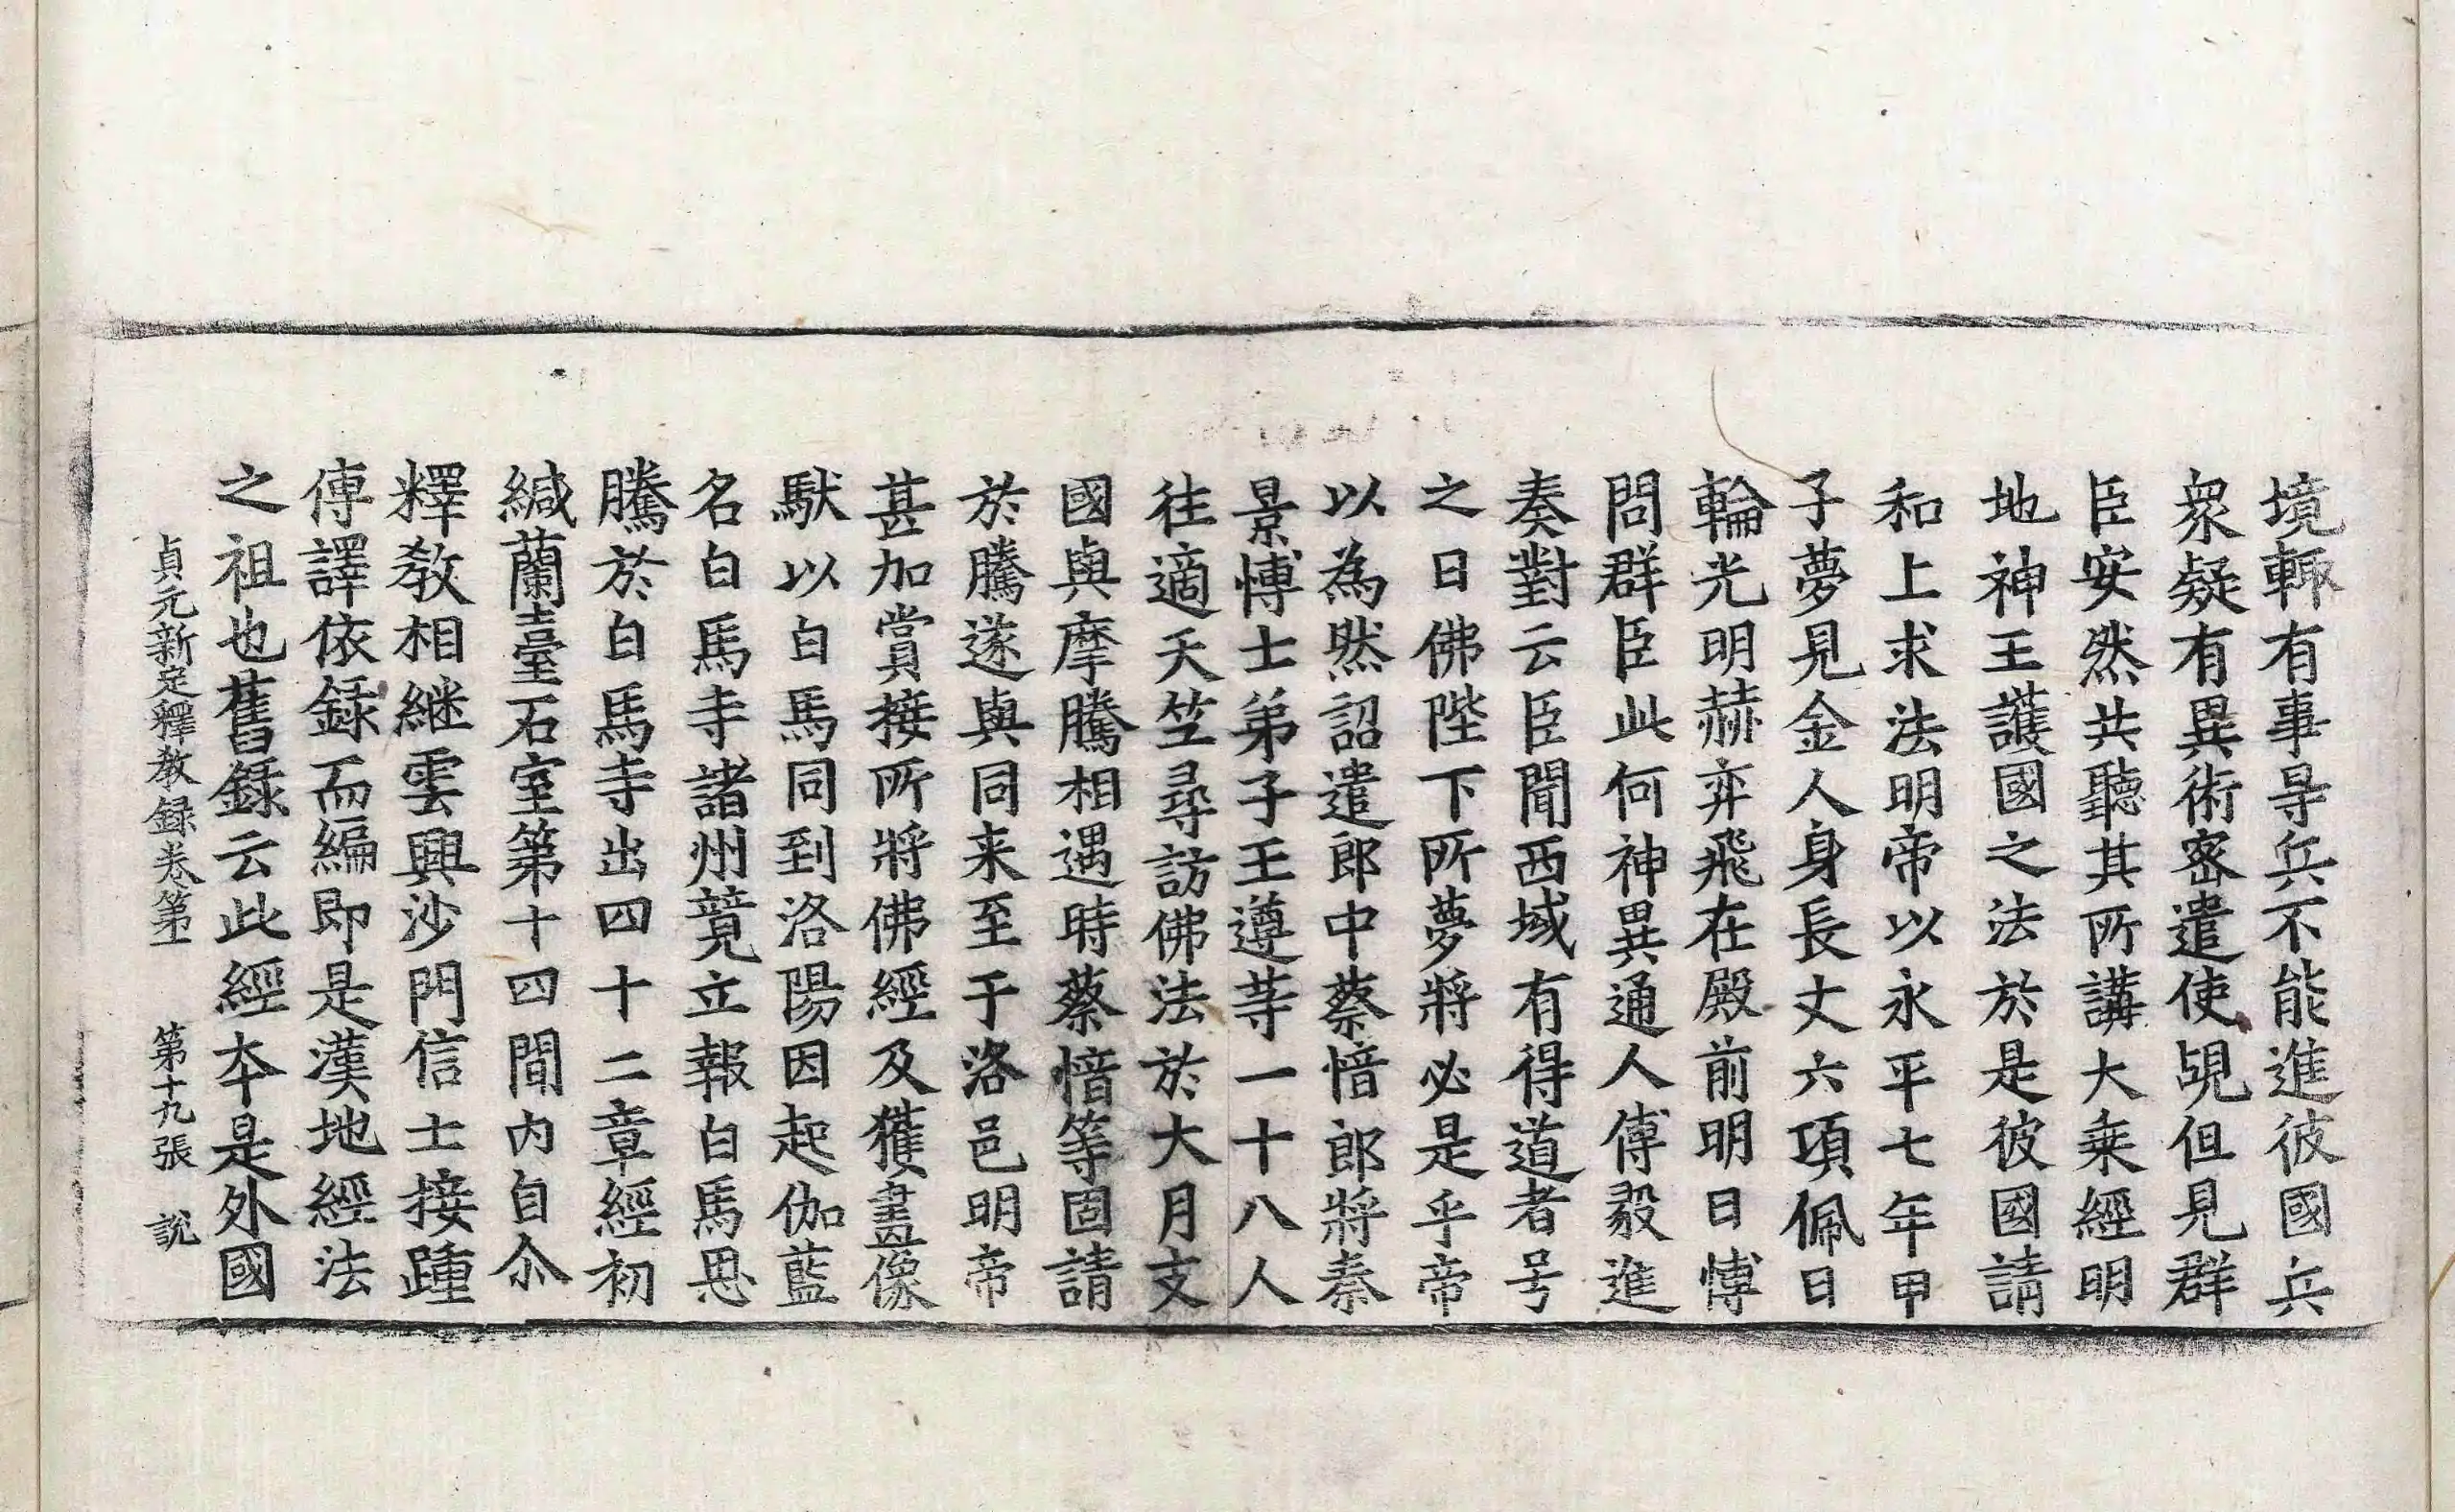 境輙有事㝵兵不能進彼國兵
衆疑有異術密遣使覘但見群
臣安然共聽其所講大乗經明
地神王護國之法於是彼國請
和上求法明帝以永平七年甲
子夢見金人身長丈六項佩日
輪光明赫弈飛在殿前明日愽
問群臣此何神異通人傅毅進
奏對云臣聞西域有得道者号
之曰佛陛下所夢將必是乎帝
以為然詔遣郎中蔡愔郎將秦
景愽士弟子王遵䓁一十八人
往適天竺尋訪佛法於大月支
國與摩騰相遇時蔡愔等固請
於騰遂與同来至于洛邑明帝
甚加賞接所將佛經及獲畫像
馱以白馬同到洛陽因起伽藍
名白馬寺諸州競立報白馬恩
騰於白馬寺出四十二章經初
緘蘭臺石室第十四間内自尒
釋教相継雲興沙門信士接踵
傳譯依録而編即是漢地經法
之祖也舊録云此經夲是外國
貞元新定釋教録卷第一 第十九張 說